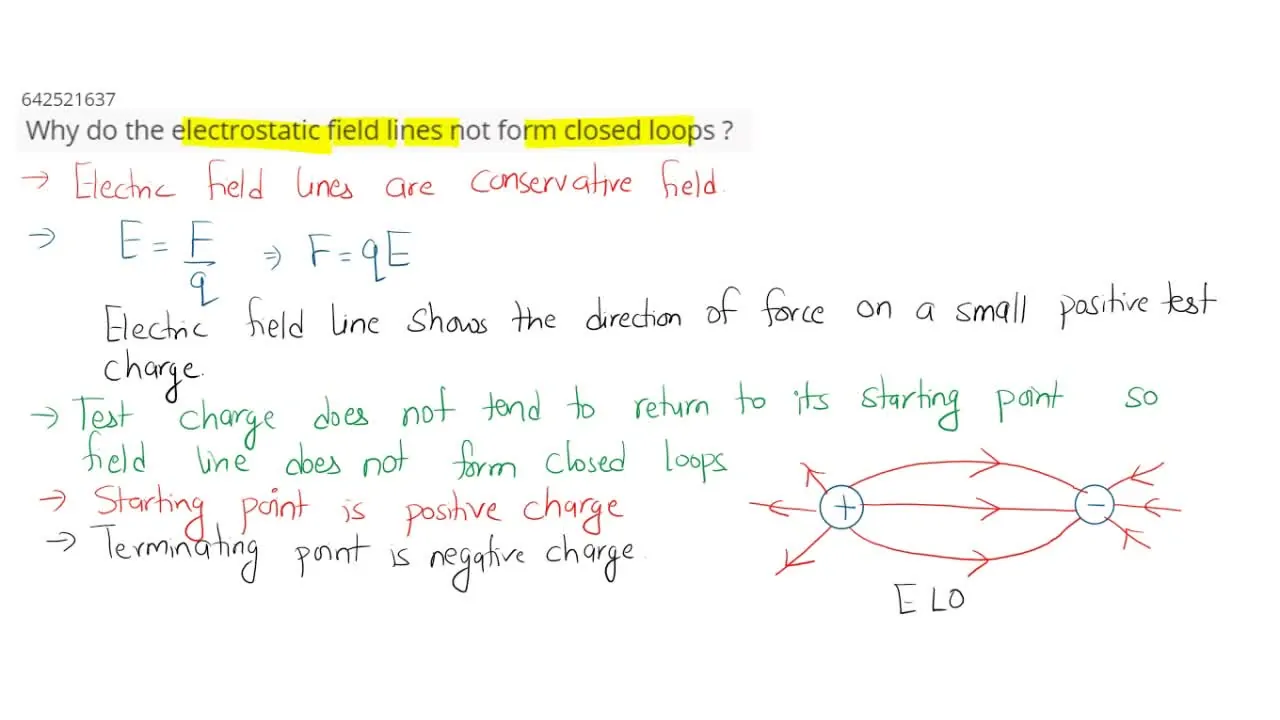 642521637
Why do the electrostatic field lines not form closed loops ?
→ Electric field lines are conservative field.
→ E = F/q ⇒ F = qE
Electric field line shows the direction of force on a small positive test
charge.
→ Test charge does not tend to return to its starting point so
field line does not form closed loops
→ Starting point is positive charge
→ Terminating point is negative charge.
+ −
E LO